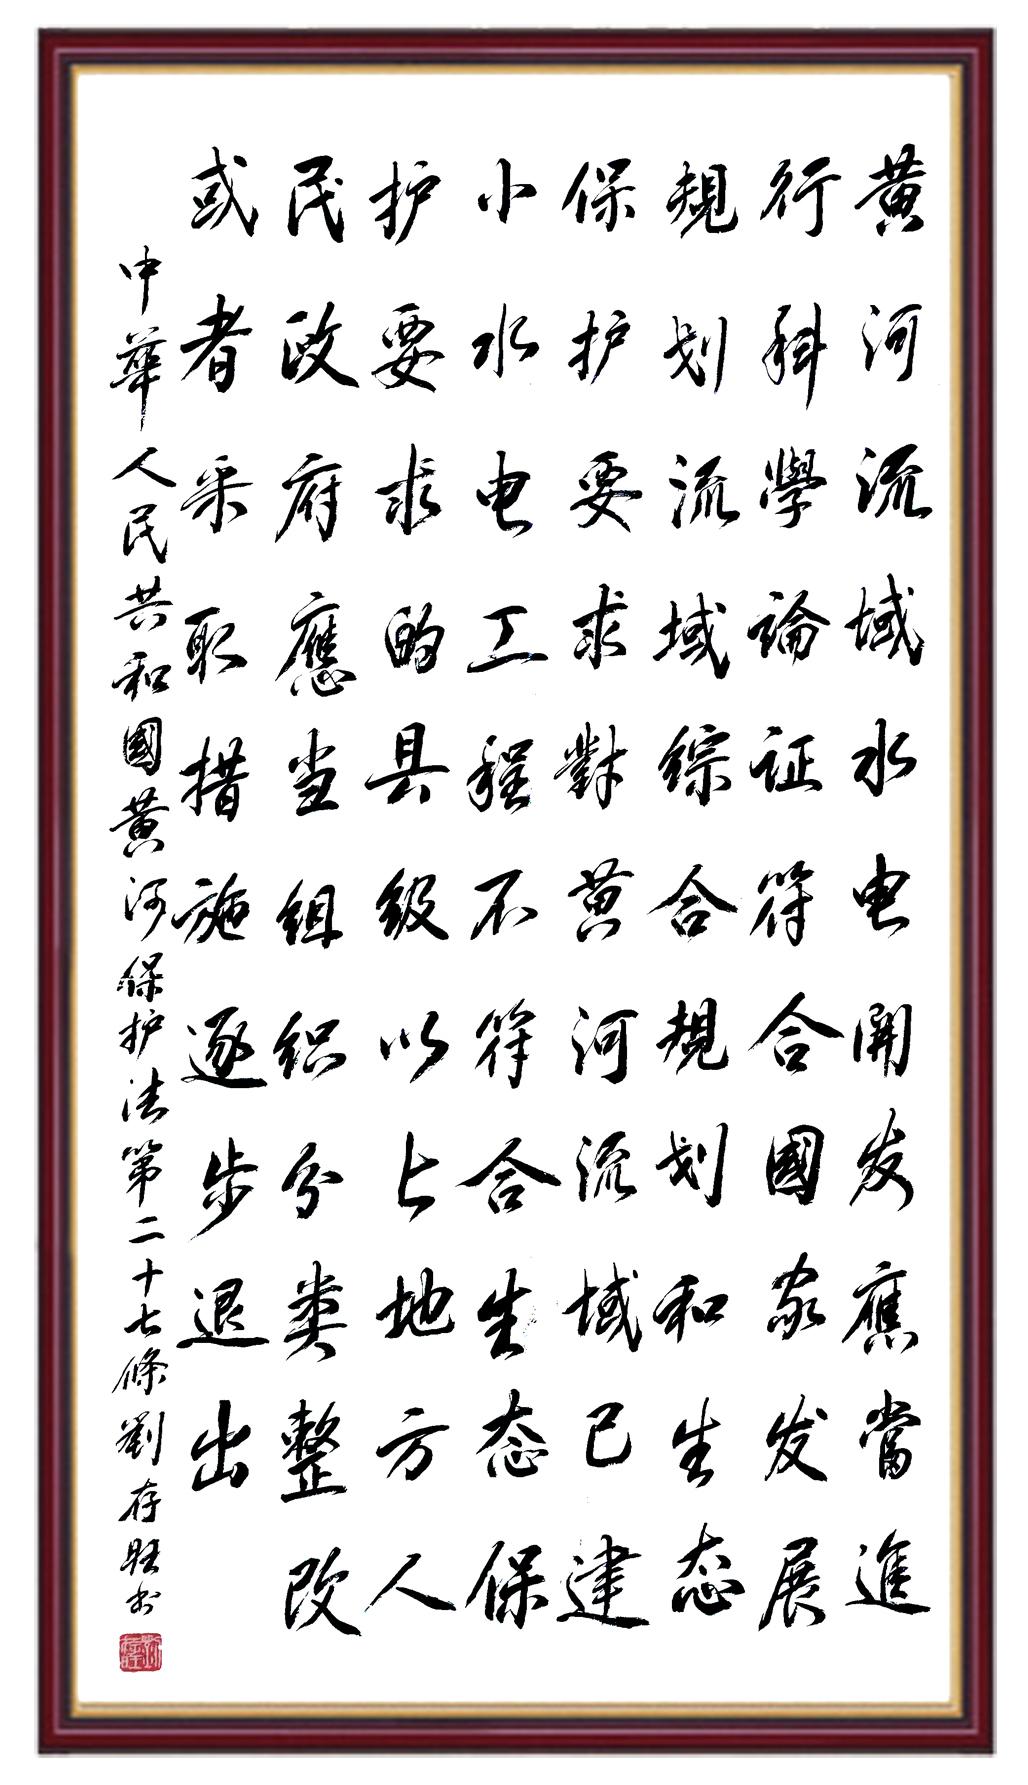 黄河流域水电開发應當進
行科學論证符合國家发展
規划流域綜合規划和生态
保护要求對黄河流域已建
小水电工程不符合生态保
护要求的县级以上地方人
民政府應当组织分类整改
或者采取措施逐步退出
中華人民共和國黄河保护法第二十七條劉存旺书